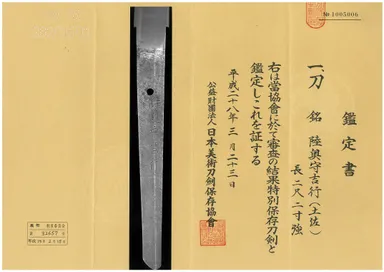 № 1005006
鑑定書
一、刀 銘 陸奥守吉行(土佐)
長 二尺二寸強
右は當協會に於て審査の結果特別保存刀剣と
鑑定しこれを証する
平成二十八年三月二十三日
公益財團法人日本美術刀剣保存協會